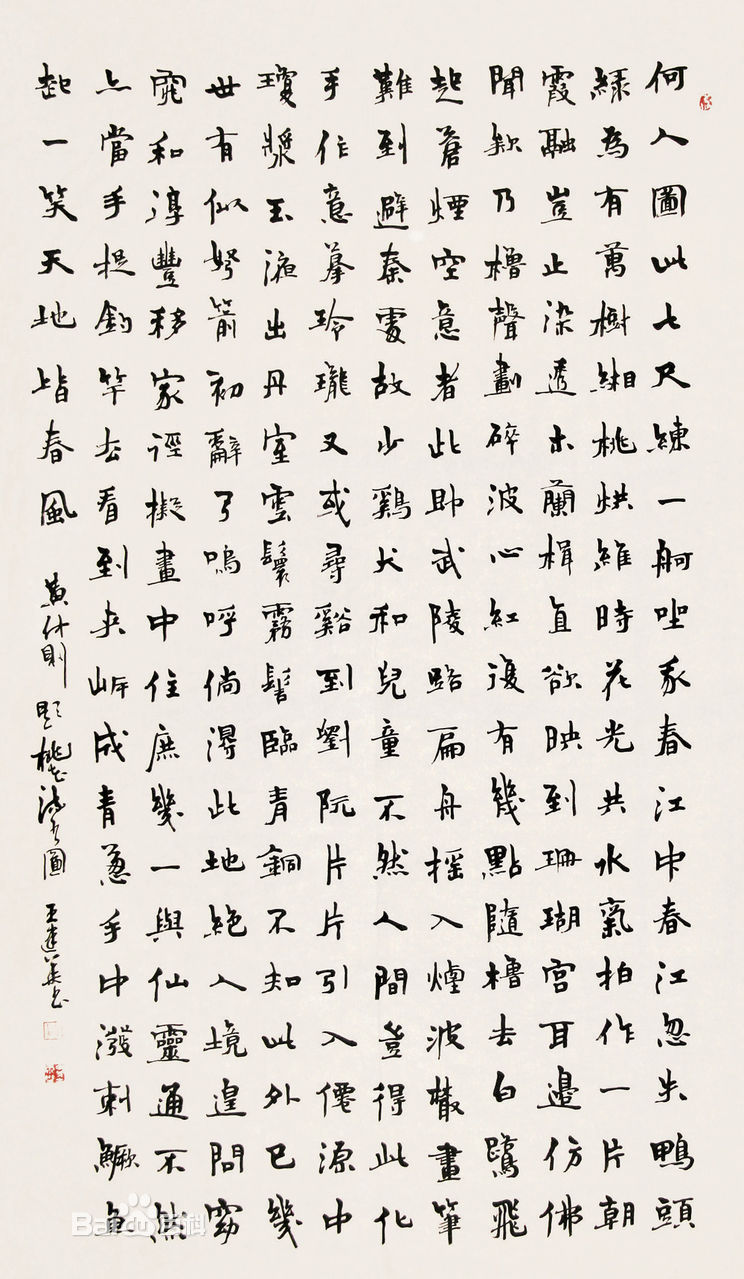 何人圖此七尺練一舸坐我春江中春江忽失鴨頭
緑為有萬樹緗桃烘維時花光共水氣拍作一片朝
霞融豈止染透木蘭楫直欲映到珊瑚宫耳邊仿佛
聞欵乃櫓聲劃碎波心紅復有幾點隨櫓去白鷺飛
起蒼煙空意者此即武陵路扁舟摇入煙波叢畫筆
難到避秦處故少鷄犬和兒童不然人間豈得此化
手作意摹玲瓏又或尋谿到劉阮片片引入僊源中
瓊漿玉液出丹室雲鬟霧髻臨青銅不知此外已幾
世有似弩箭初辭弓嗚呼倘得此地絶人境遑問窈
窕和淳豐移家徑擬畫中住庶幾一與仙靈通不然
亦當手提釣竿去看到夾岸成青葱手中潑刺鱖魚
起一笑天地皆春風
黄仲則題桃花圖 王建
Baidu百科